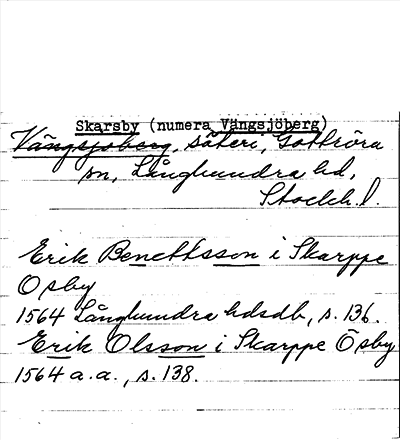 Skarsby (numera Vängsjöberg)
Vängsjöberg, säteri, Gottröra
sn, Långhundra hd,
Stockh. l.
Erik Benettsson i Skarppe
Ösby
1564 Långhundra hdsdb, s. 136.
Erik Olsson i Skarppe Ösby
1564 a. a., s. 138.